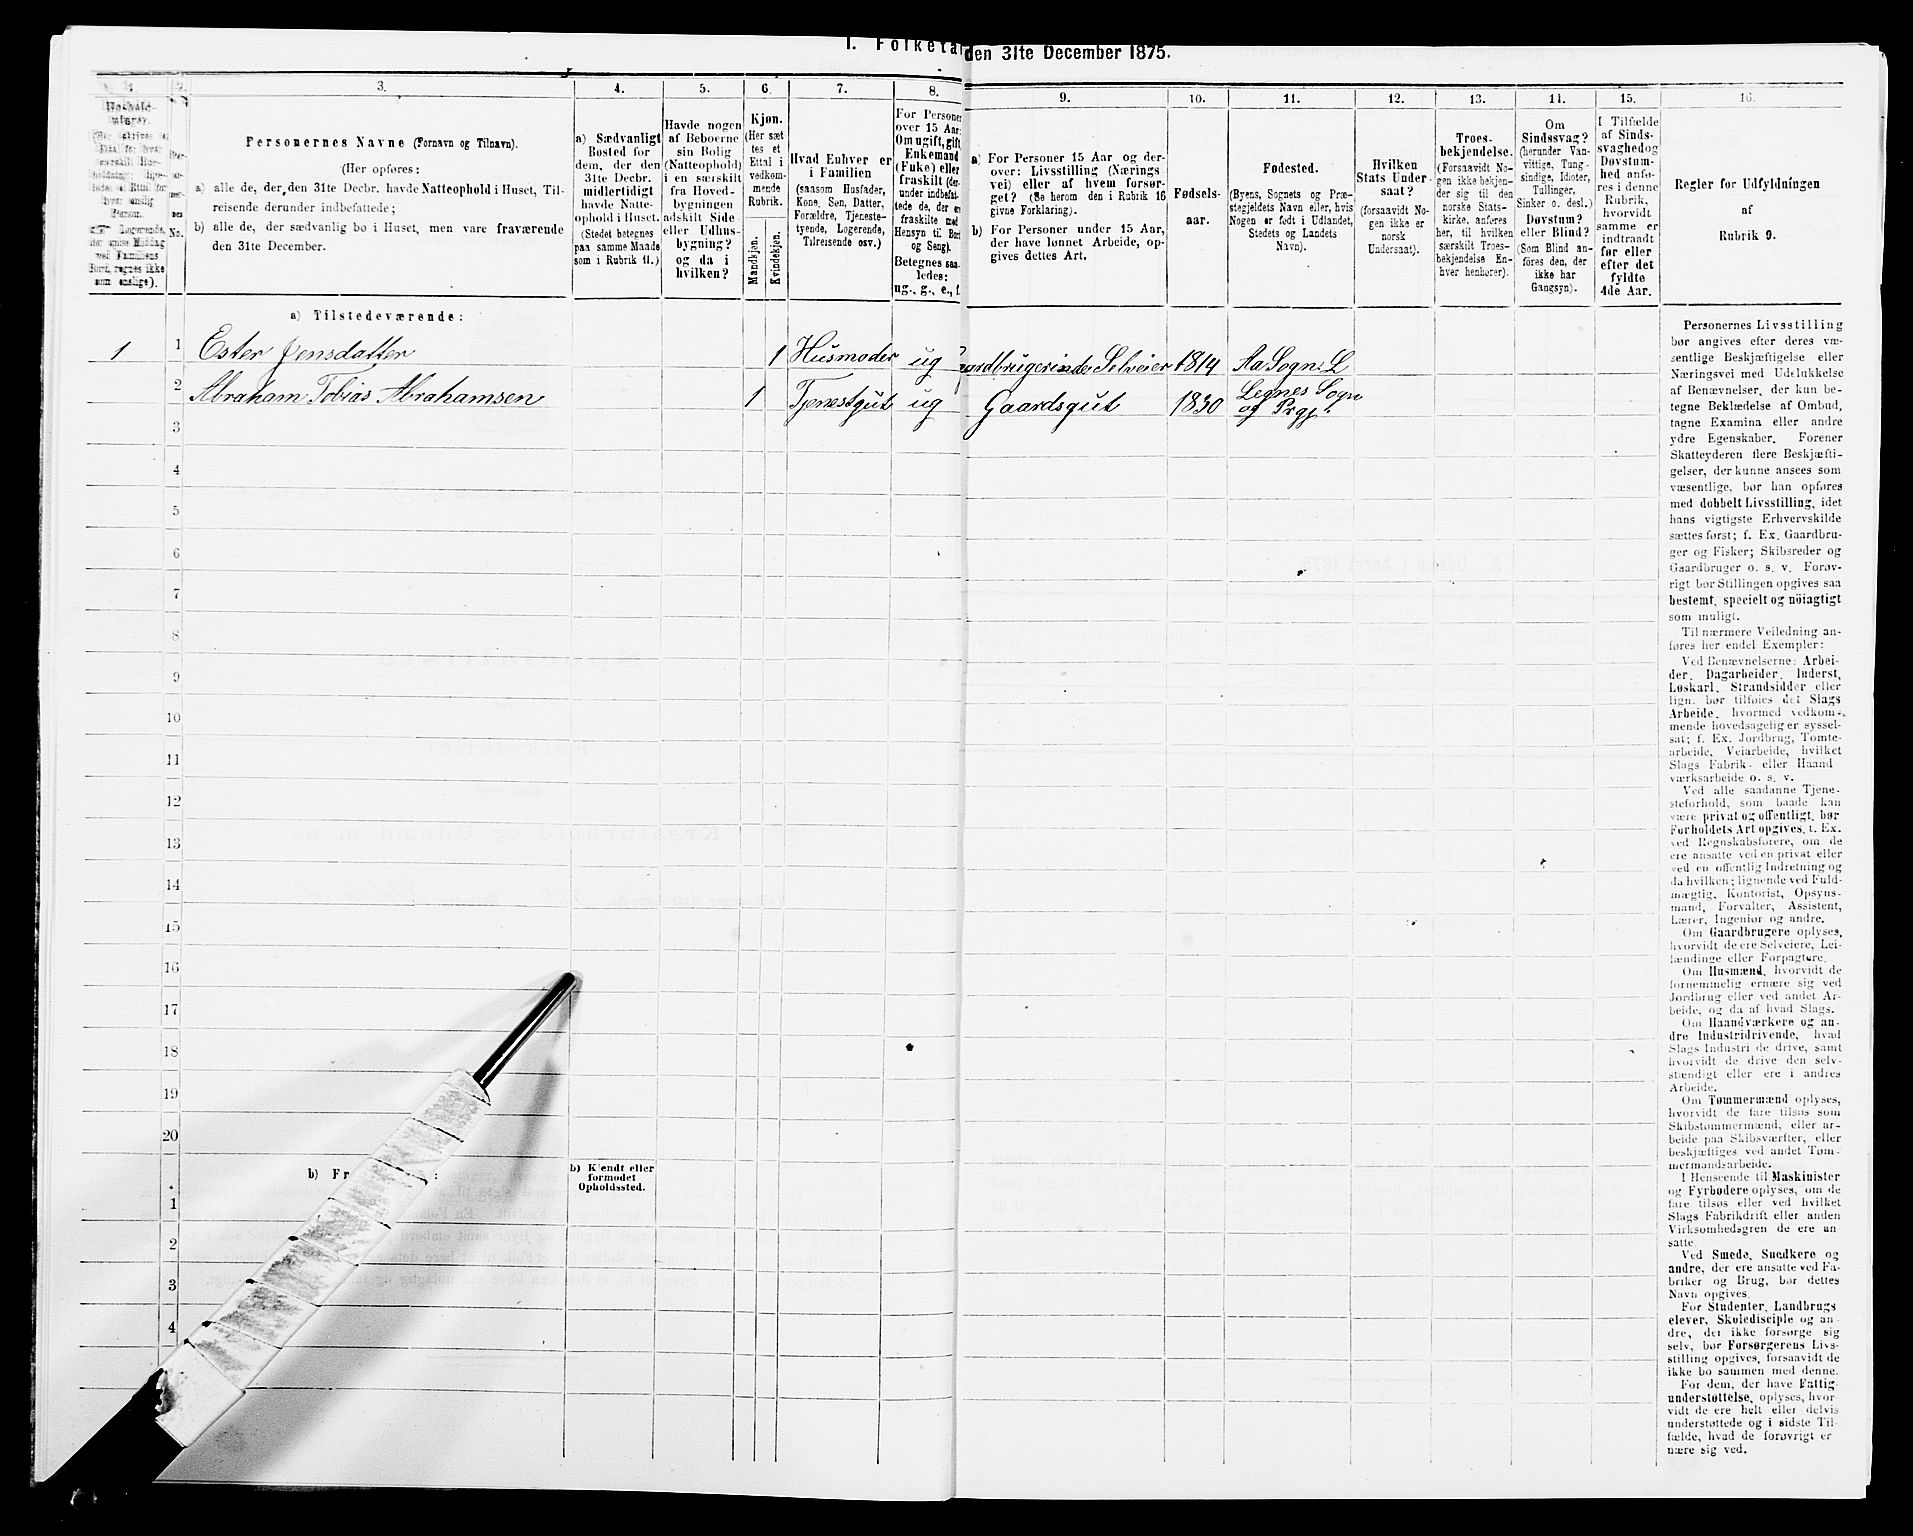 I. Folketa den 31te December 1875.
3.
4.
5.
6.
7.
8.
9.
10.
11.
12.
13.
14.
15.
16.
Personernes Navne (Fornavn og Tilnavn).
(Her opføres:
a) alle de, der den 31te Decbr. havde Natteophold i Huset, Til-
reisende derunder indbefattede;
b) alle de, der sædvanlig bo i Huset, men vare fraværende
den 31te December.
a) Sædvanligt
Bosted for
dem, der den
31te Decbr.
midlertidigt
havde Natte-
ophold i Huset.
(Stedet betegnes
paa samme Maade
som i Rubrik 11.)
Havde nogen
af Beboerne
sin Bolig
(Natteophold)
i en særskilt
fra Hoved-
bygningen
adskilt Side-
eller Udhus-
bygning?
og da i
hvilken?
Kjøn.
(Her sæt
tes et
Ettal i
vedkom-
mende
Rubrik.
Mandkjøn.
Kvindekjøn.
Hvad Enhver er
i Familien
(saasom Husfader,
Kone, Søn, Datter,
Forældre, Tjeneste-
tyende, Logerende,
Tilreisende osv.)
For Persone
over 15 Aar:
Om ugift, gift
Enkemand
(Enke) eller
fraskilt (der-
under indbefat-
tede de, der er
fraskilte med
Hensyn til Bor
og Seng).
Betegnes saa-
ledes:
ug., g., e., f.
a) For Personer 15 Aar og der-
over: Livsstilling (Nærings
vei) eller af hvem forsør-
get? (Se herom den i Rubrik 16
givne Forklaring).
b) For Personer under 15 Aar,
der have lønnet Arbeide, op-
gives dettes Art.
Fødsels-
aar.
Fødested.
(Byens, Sognets og Præ-
stegjeldets Navn eller, hvis
Nogen er født i Udlandet,
Stedets og Landets
Navn).
Hvilken
Stats Under
saat?
(forsaavidt No-
gen ikke er
norsk
Undersaat).
Troes-
bekjendelse.
(Forsaavidt No-
gen ikke bekjen-
der sig til den
norske Stats-
kirke, anføres
her, til hvilken
særskilt Troes-
bekjendelse En-
hver henhører).
Om
Sindssvag?
(herunder Van-
vittige, Tung-
sindige, Idioter,
Tullinger,
Sinker o. desl.)
Døvstum?
eller Blind?
(Som Blind an-
føres den, der
ikke har
Gangsyn).
I Tilfælde
af Sinds-
svaghed og
Døvstum-
hed anfø-
res i denne
Rubrik,
hvorvidt
samme er
indtraadt
før eller
efter det
fyldte
4de Aar.
Regler for Udfyldningen
af
Rubrik 9.
a) Tilstedeværende:
1 1 Ester Jensdatter 1 Husmoder ug Gaardbrugerinde Selveier 1814 Aa Sogn. L
2 Abraham Tobias Abrahamsen 1 Tjenestgut ug Gaardsgut 1830 Legnes Sogn
og Prgj.
3
4
5
6
7
8
9
10
11
12
13
14
15
16
17
18
19
20
b) Fr :
b) Kjendt eller
formodet
Opholdssted.
1
2
3
4
Personernes Livsstilling
bør angives efter deres væ-
sentlige Beskjæftigelse eller
Næringsvei med Udelukkelse
af Benævnelser, der kun be-
tegne Beklædelse af Ombud,
tagne Examina eller andre
ydre Egenskaber. Forener
Skatteyderen flere Beskjæfti-
gelser, der kunne ansees som
væsentlige, bør han opføres
med dobbelt Livsstilling, idet
hans vigtigste Erhvervskilde
sættes først; f. Ex. Gaardbru-
ger og Fisker; Skibsreder og
Gaardbruger o. s. v. Forøv-
rigt bør Stillingen opgives saa
bestemt, specielt og nöiagtigt
som muligt.
Til nærmere Veiledning an-
føres her endel Exempler:
Ved Benævnelserne: Arbei-
der, Dagarbeider, Inderst,
Løskarl, Strandsidder eller
lign. bør tilføies det Slags
Arbeide, hvormed vedkom-
mende hovedsagelig er syssel-
sat; f. Ex. Jordbrug, Tomte-
arbeide, Veiarbeide, hvilket
Slags Fabrik- eller Haand
værksarbeide o. s. v.
Ved alle saadanne Tjene-
steforhold, som baade kan
være privat og offentligt, bør
Forholdets Art opgives, f. Ex.
ved Regnskabsførere, om de
ere ansatte ved en privat eller
ved en offentlig Indretning og
da hvilken; lignende ved Fuld-
mægtig, Kontorist, Opsyns-
mand, Forvalter, Assistent,
Lærer, Ingeniør og andre.
Om Gaardbrugere oplyses,
hvorvidt de ere Selveiere, Lei-
lændinge eller Forpagtere.
Om Husmænd, hvorvidt de
fornemmelig ernære sig ved
Jordbrug eller ved andet Ar-
beide, og da af hvad Slags.
Om Haandværkere og an-
dre Industridrivende, hvad
Slags Industri de drive, samt
hvorvidt de drive den selv-
stændigt eller ere i andres
Arbeide.
Om Tømmermænd oplyses,
hvorvidt de fare tilsøs som
Skibstømmermænd, eller ar-
beide paa Skibsværfter, eller
beskjæftiges ved andet Tøm-
mermandsarbeide.
I Henseende til Maskinister
og Fyrbødere oplyses, om de
fare tilsøs eller ved hvilket
Slags Fabrikdrift eller anden
Virksomhedsgren de ere an-
satte.
Ved Smede, Snedkere og
andre, der ere ansatte ved Fa-
briker og Brug, bør dettes
Navn opgives.
For Studenter, Landbrugs
elever, Skoledisciple og an-
dre, der ikke forsørge sig
selv, bør Forsørgerens Livs-
stilling opgives, forsaavidt de
ikke bo sammen med denne.
For dem, der have Fattig-
understøttelse, oplyses, hvor-
vidt de ere helt eller delvis
understøttede og i sidste Til-
fælde, hvad de forøvrigt er
nære sig ved.